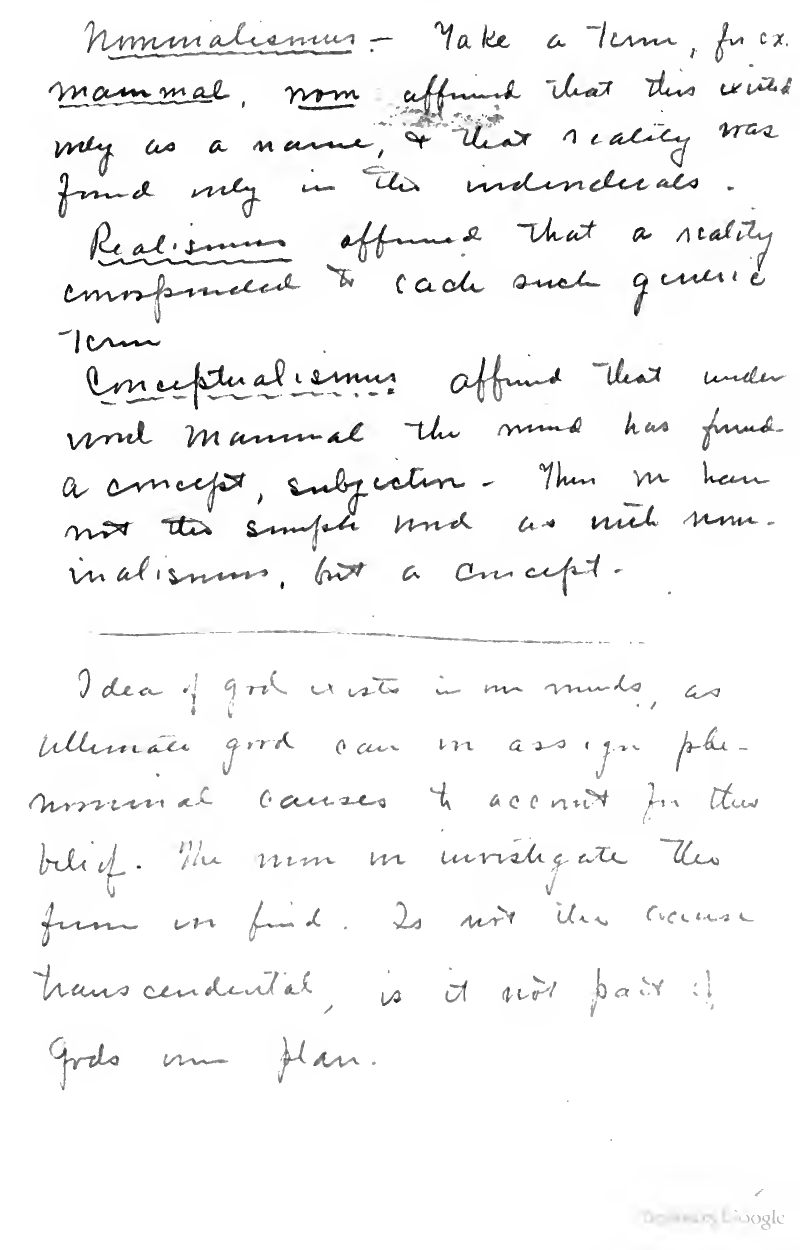 Nominalismus. - Take a term, for ex.
mammal, nom affirmed that this existed
only as a name, & that reality was
found only in the individuals.
Realismus affirmed that a reality
corresponded to each such generic
term
Conceptualismus affirmed that under
word mammal the mind has found
a concept, subjective - Thus we have
not the simple word as with nom-
inalismus, but a concept.
Idea of god exists in our minds, as
ultimate good can we assign phe-
nominal causes to account for this
belief. The more we investigate the
we find. Is not the cause
transcendental, is it not part of
Gods own plan.
Google